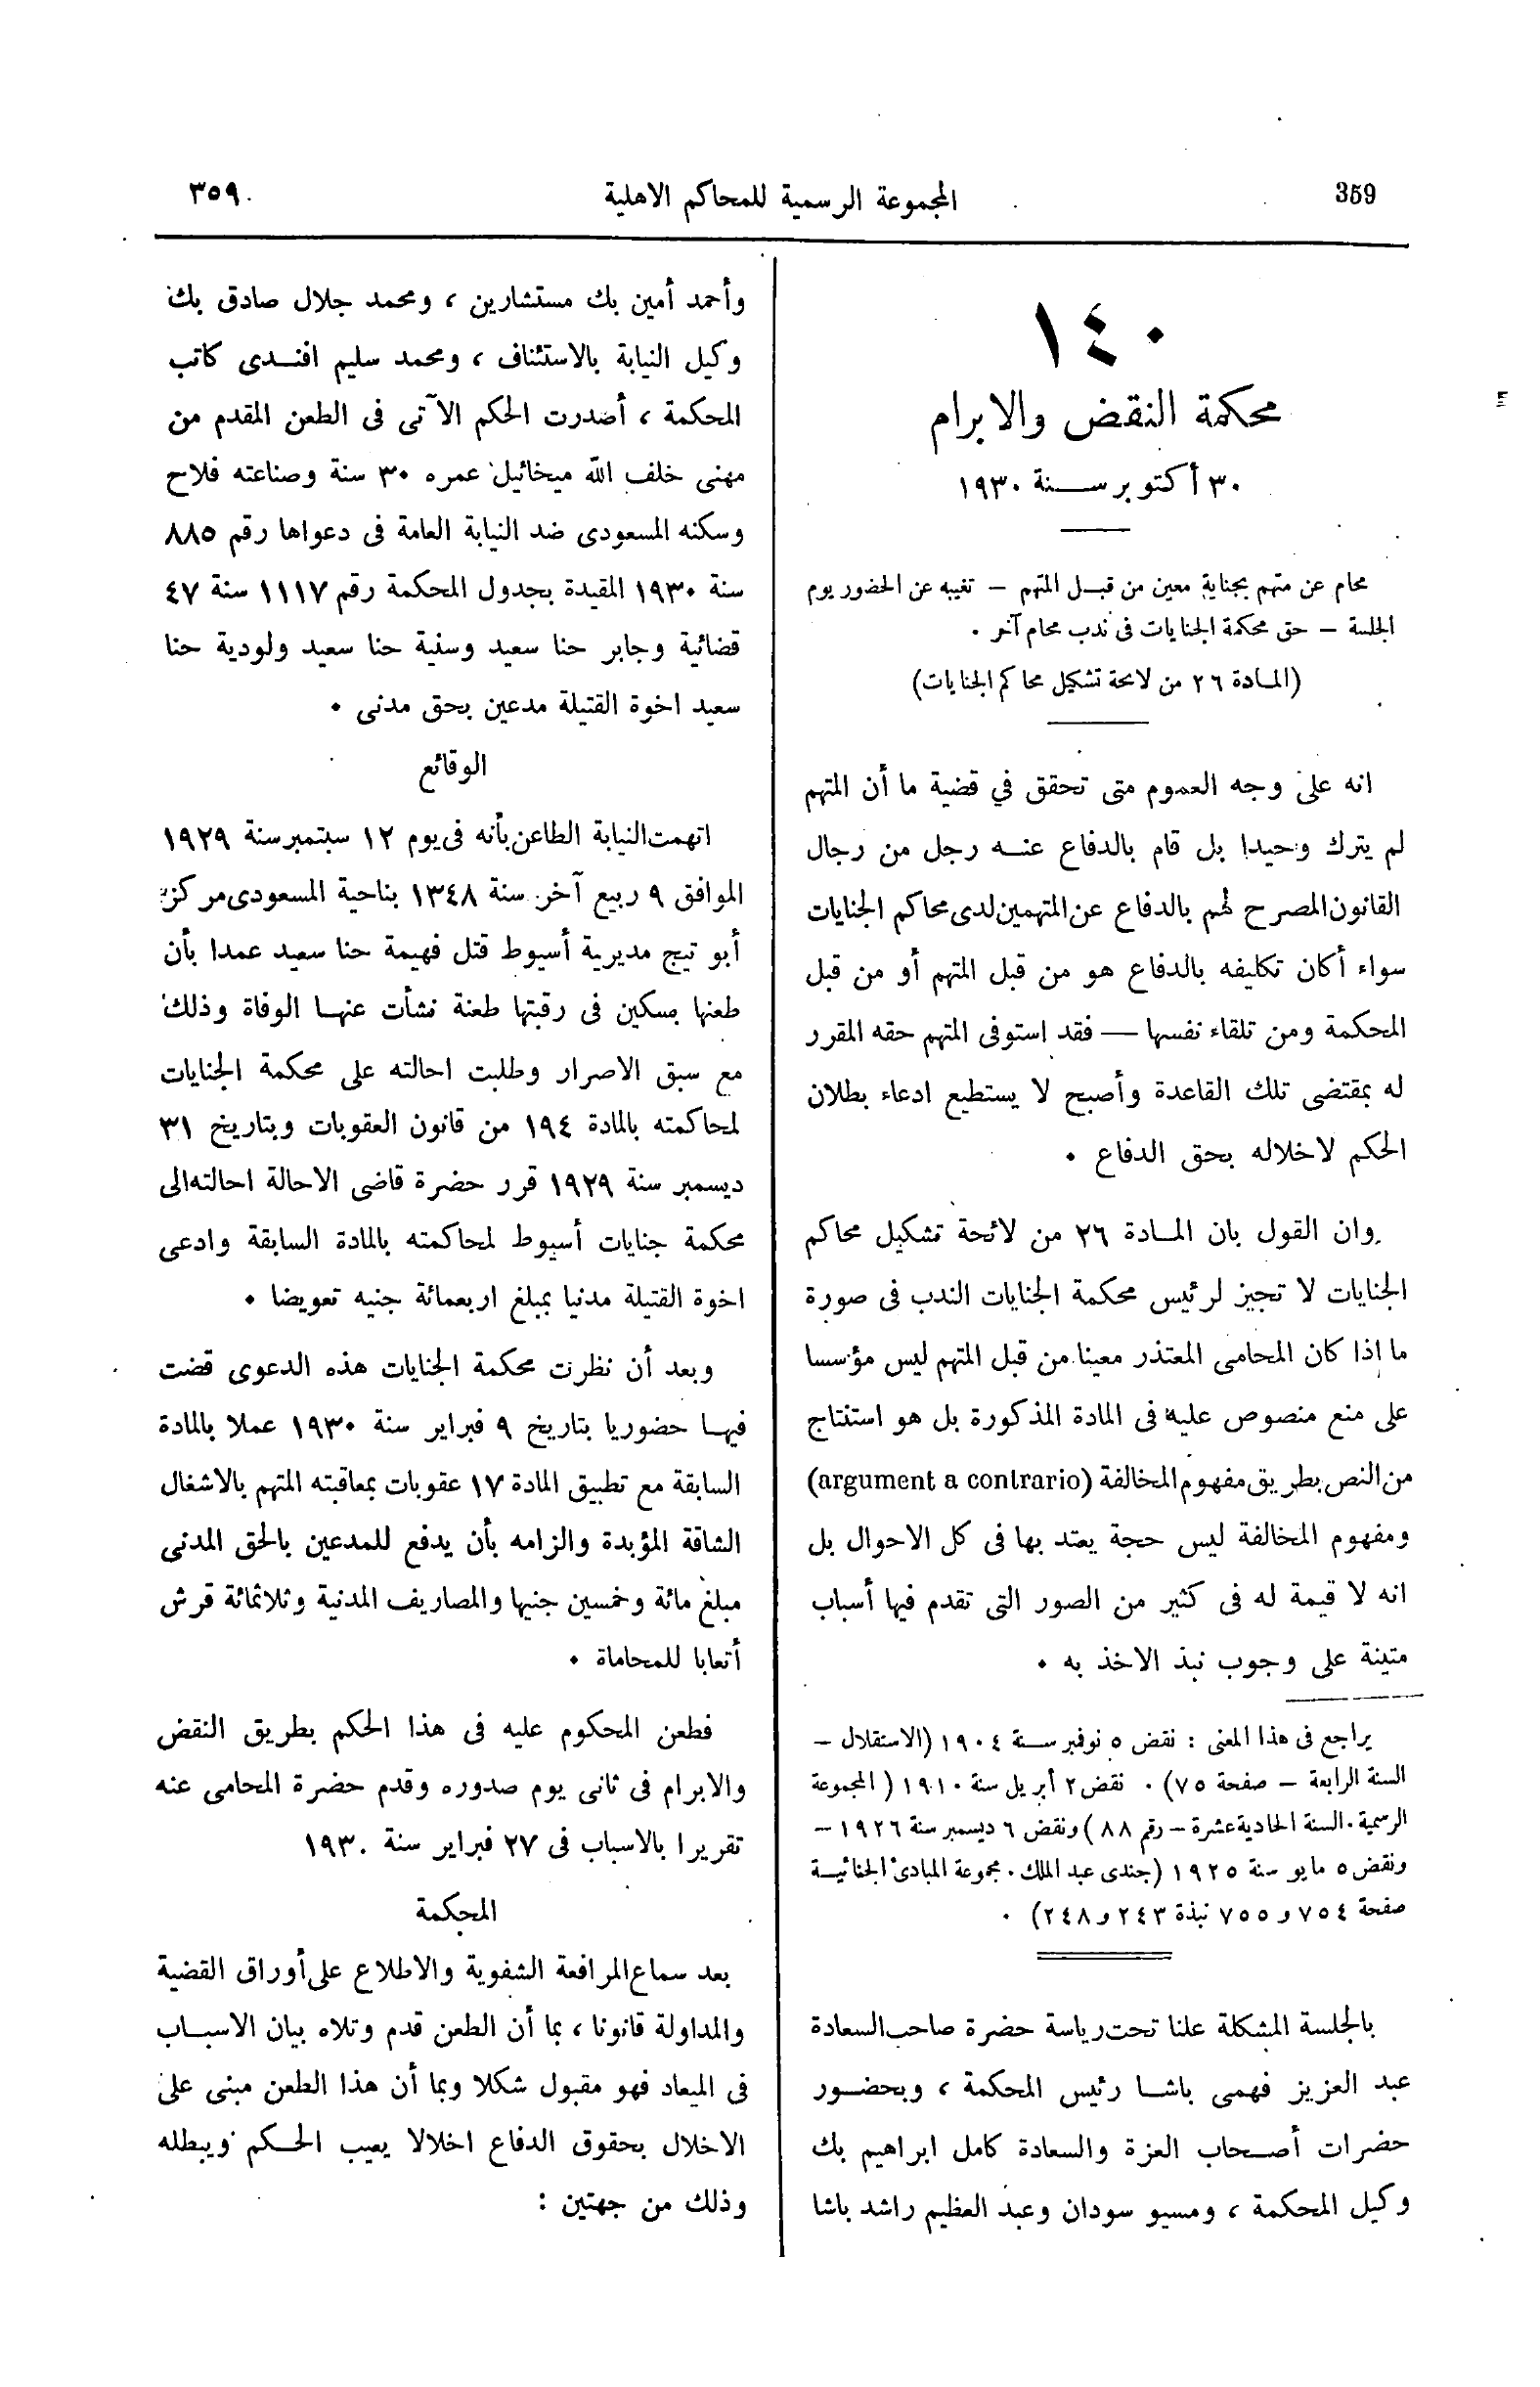 359
المجموعة الرسمية للمحاكم الاهلية
٣٥٩
١٤٠
محكمة النقض والابرام
٣٠ أكتوبر سنة ١٩٣٠
محام عن متهم بجناية معين من قبل المتهم – تغيبه عن الحضور يوم
الجلسة – حق محكمة الجنايات فى ندب محام آخر .
(المادة ٢٦ من لائحة تشكيل محاكم الجنايات)
انه على وجه العموم متى تحقق في قضية ما أن المتهم
لم يترك وحيدا بل قام بالدفاع عنه رجل من رجال
القانون المصرح لهم بالدفاع عن المتهمين لدى محاكم الجنايات
سواء أكان تكليفه بالدفاع هو من قبل المتهم أو من قبل
المحكمة ومن تلقاء نفسها — فقد استوفى المتهم حقه المقرر
له بمقتضى تلك القاعدة وأصبح لا يستطيع ادعاء بطلان
الحكم لاخلاله بحق الدفاع .
وان القول بان المادة ٢٦ من لائحة تشكيل محاكم
الجنايات لا تجيز لرئيس محكمة الجنايات الندب فى صورة
ما إذا كان المحامى المعتذر معينا من قبل المتهم ليس مؤسسا
على منع منصوص عليه فى المادة المذكورة بل هو استنتاج
من النص بطريق مفهوم المخالفة (argument a contrario)
ومفهوم المخالفة ليس حجة يعتد بها فى كل الاحوال بل
انه لا قيمة له فى كثير من الصور التى تقدم فيها أسباب
متينة على وجوب نبذ الاخذ به .
يراجع فى هذا المعنى : نقض ٥ نوفمبر سنة ١٩٠٤ (الاستقلال –
السنة الرابعة – صفحة ٧٥) . نقض ٢ أبريل سنة ١٩١٠ ( المجموعة
الرسمية . السنة الحادية عشرة – رقم ٨٨ ) ونقض ٦ ديسمبر سنة ١٩٢٦ –
ونقض ٥ مايو سنة ١٩٢٥ (جندى عبد الملك . مجموعة المبادئ الجنائية
صفحة ٧٥٤ و ٧٥٥ نبذة ٢٤٣ و ٢٤٨) .
بالجلسة المشكلة علنا تحت رياسة حضرة صاحب السعادة
عبد العزيز فهمى باشا رئيس المحكمة ، وبحضور
حضرات أصحاب العزة والسعادة كامل ابراهيم بك
وكيل المحكمة ، ومسيو سودان وعبد العظيم راشد باشا
وأحمد أمين بك مستشارين ، ومحمد جلال صادق بك
وكيل النيابة بالاستئناف ، ومحمد سليم افندى كاتب
المحكمة ، أصدرت الحكم الآتى فى الطعن المقدم من
مهنى خلف الله ميخائيل عمره ٣٠ سنة وصناعته فلاح
وسكنه المسعودى ضد النيابة العامة فى دعواها رقم ٨٨٥
سنة ١٩٣٠ المقيدة بجدول المحكمة رقم ١١١٧ سنة ٤٧
قضائية وجابر حنا سعيد وسنية حنا سعيد ولودية حنا
سعيد اخوة القتيلة مدعين بحق مدنى .
الوقائع
اتهمت النيابة الطاعن بأنه فى يوم ١٢ سبتمبر سنة ١٩٢٩
الموافق ٩ ربيع آخر سنة ١٣٤٨ بناحية المسعودى مركز
أبو تيج مديرية أسيوط قتل فهيمة حنا سعيد عمدا بأن
طعنها بسكين فى رقبتها طعنة نشأت عنها الوفاة وذلك
مع سبق الاصرار وطلبت احالته على محكمة الجنايات
لمحاكمته بالمادة ١٩٤ من قانون العقوبات وبتاريخ ٣١
ديسمبر سنة ١٩٢٩ قرر حضرة قاضى الاحالة احالته الى
محكمة جنايات أسيوط لمحاكمته بالمادة السابقة وادعى
اخوة القتيلة مدنيا بمبلغ اربعمائة جنيه تعويضا .
وبعد أن نظرت محكمة الجنايات هذه الدعوى قضت
فيها حضوريا بتاريخ ٩ فبراير سنة ١٩٣٠ عملا بالمادة
السابقة مع تطبيق المادة ١٧ عقوبات بمعاقبته المتهم بالاشغال
الشاقة المؤبدة والزامه بأن يدفع للمدعين بالحق المدنى
مبلغ مائة وخمسين جنيها والمصاريف المدنية وثلاثمائة قرش
أتعابا للمحاماة .
فطعن المحكوم عليه فى هذا الحكم بطريق النقض
والابرام فى ثانى يوم صدوره وقدم حضرة المحامى عنه
تقريرا بالاسباب فى ٢٧ فبراير سنة ١٩٣٠
المحكمة
بعد سماع المرافعة الشفوية والاطلاع على أوراق القضية
والمداولة قانونا ، بما أن الطعن قدم وتلاه بيان الاسباب
فى الميعاد فهو مقبول شكلا وبما أن هذا الطعن مبنى على
الاخلال بحقوق الدفاع اخلالا يعيب الحكم ويبطله
وذلك من جهتين :